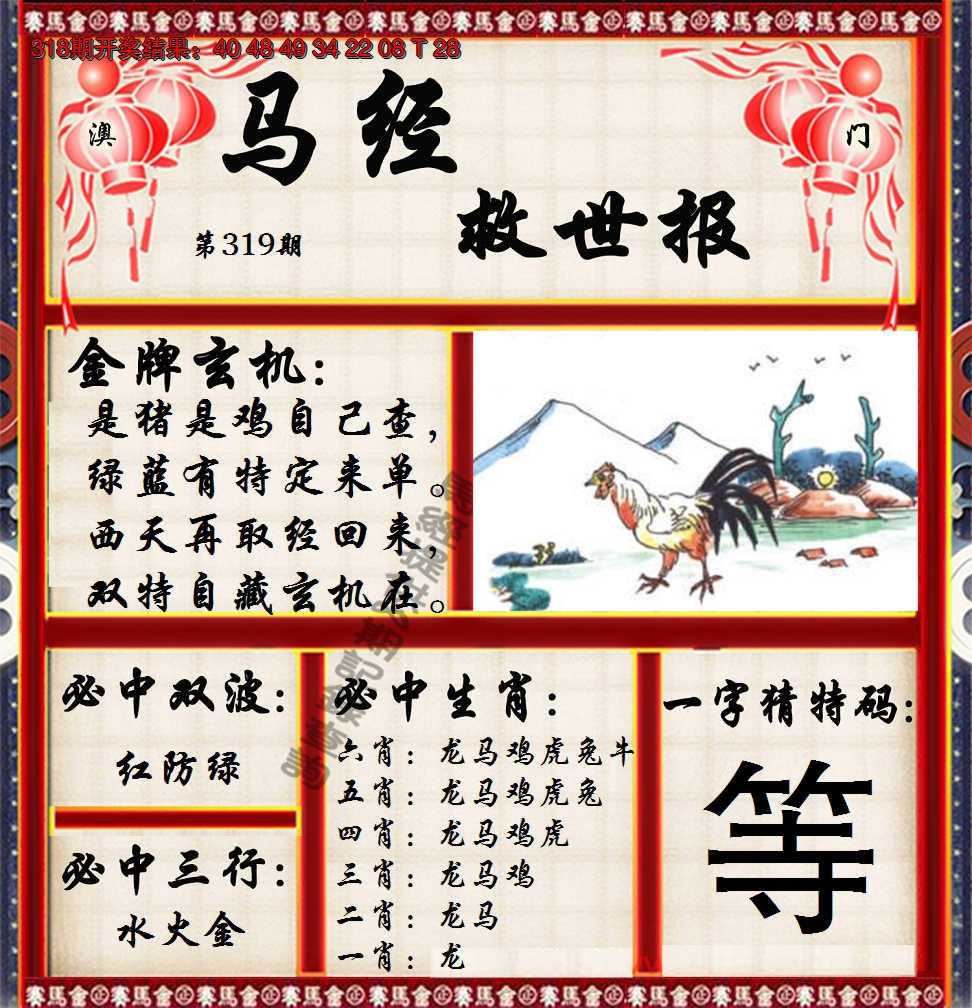 318期开奖结果：40 48 49 34 22 08 T 28
澳
门
马经
救世报
第319期
金牌玄机：
是猪是鸡自己查，
绿蓝有特定来单。
西天再取经回来，
双特自藏玄机在。
必中双波：
红防绿
必中三行：
水火金
必中生肖：
六肖：龙马鸡虎兔牛
五肖：龙马鸡虎兔
四肖：龙马鸡虎
三肖：龙马鸡
二肖：龙马
一肖：龙
一字猜特码：
等